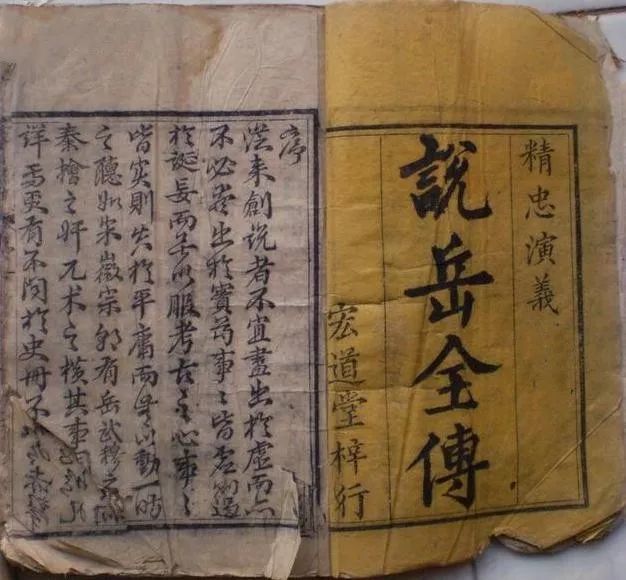 精忠演義
說岳全傳
宏道堂梓行
序
從来創說者不宜盡出於虛而亦
不必盡出於實苟事〻皆虛則過
於誕妄而無以服考古之心事〻
皆實則失於平庸而無以動一時
之聽如宋徽宗朝有岳武穆之忠
秦檜之奸兀术之橫其事
詳焉更有不聞於史冊不